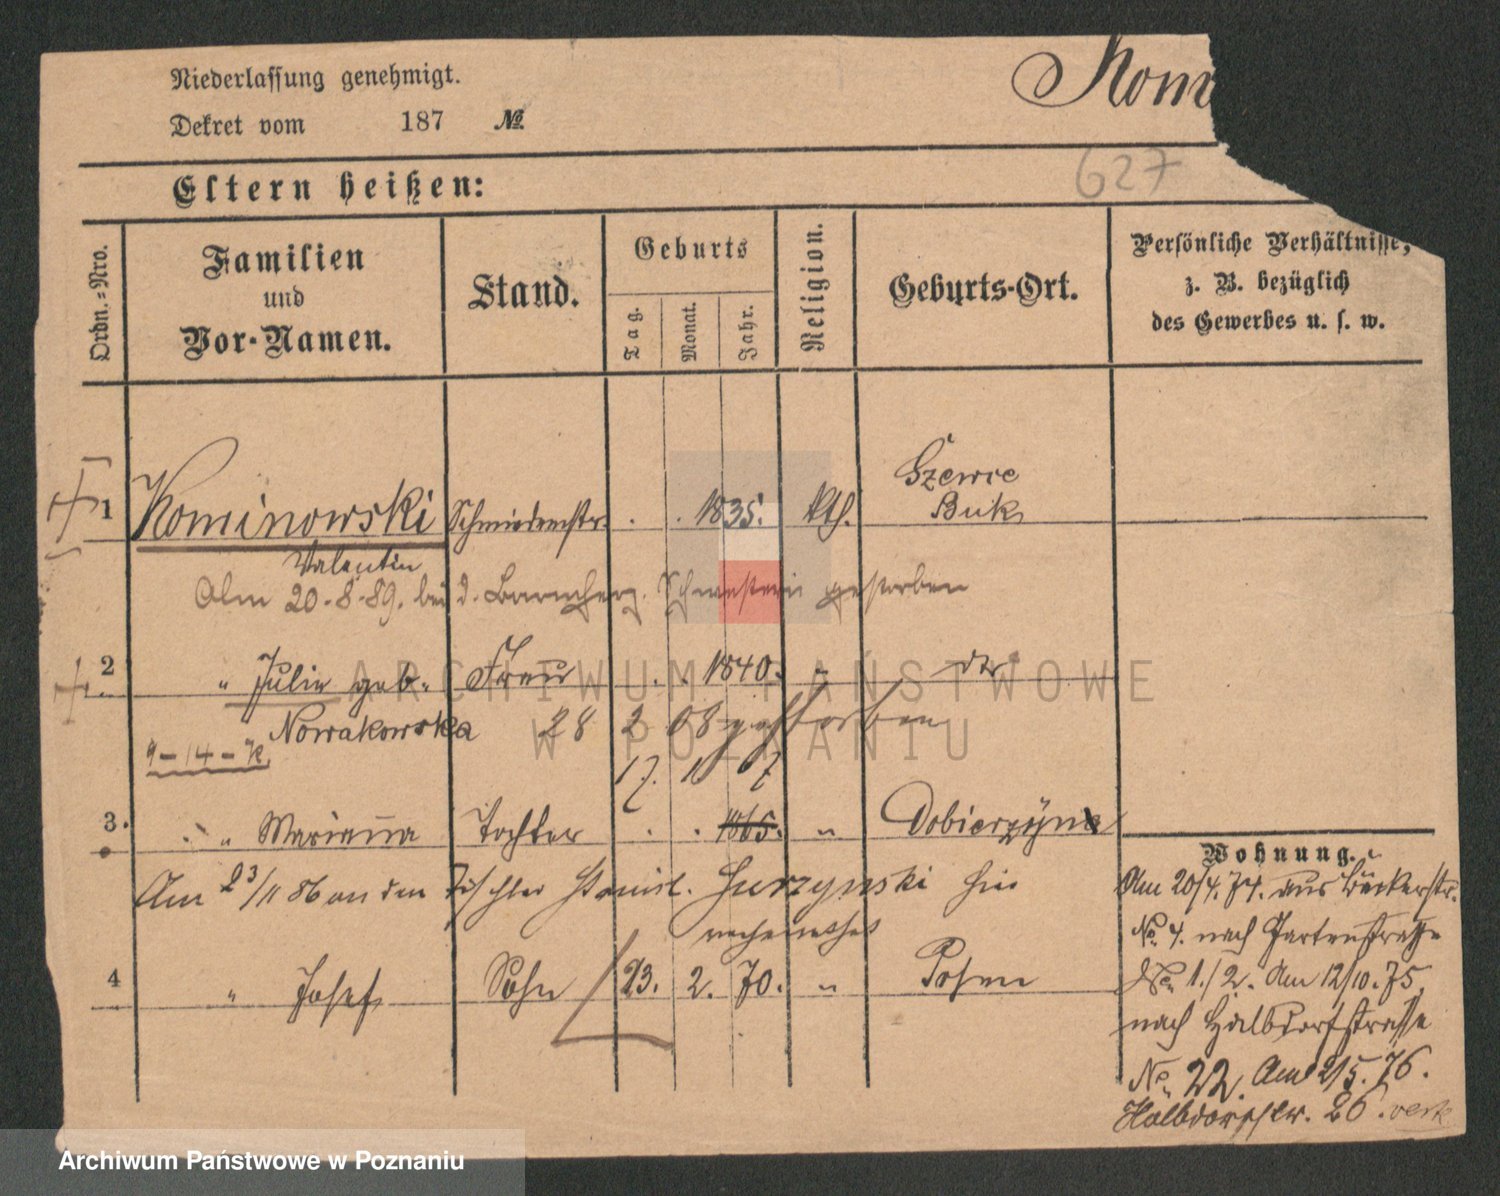 Niederlassung genehmigt.
Kom
Dekret vom 187 №
627
Eltern heißen:
Ordn.=Nro.
Familien
und
Vor-Namen.
Stand.
Geburts
Tag.
Monat.
Jahr.
Religion.
Geburts-Ort.
Persönliche Verhältnisse,
z. B. bezüglich
des Gewerbes u. s. w.
1 Kominowski Schmiedemstr. . . 1835. kth. Szewce
Buk
Valentin
Am 20-8-89. bei d. Barmherz. Schwestern gestorben
2 " Julie geb. Frau . . 1840. " do
Nowakowska 28 2 08 gestorben
9-14-K
17. 11 67
3. " Marianna Tochter . . 1865. " Dobierzyn
Am 23/11 86 an den Tischler Stanisl. Gurzynski hier
verheirathet
4 " Josef Sohn 23. 2. 70. " Posen
Wohnung.
Am 20/4. 74. aus Bäckerstr.
No. 4. nach Gartenstraße
No. 1./2. Am 12/10. 75.
nach Halbdorfstrasse
No. 22. Am 2/5. 76.
Halbdorfstr. 26.
ARCHIWUM PAŃSTWOWE
W POZNANIU
Archiwum Państwowe w Poznaniu